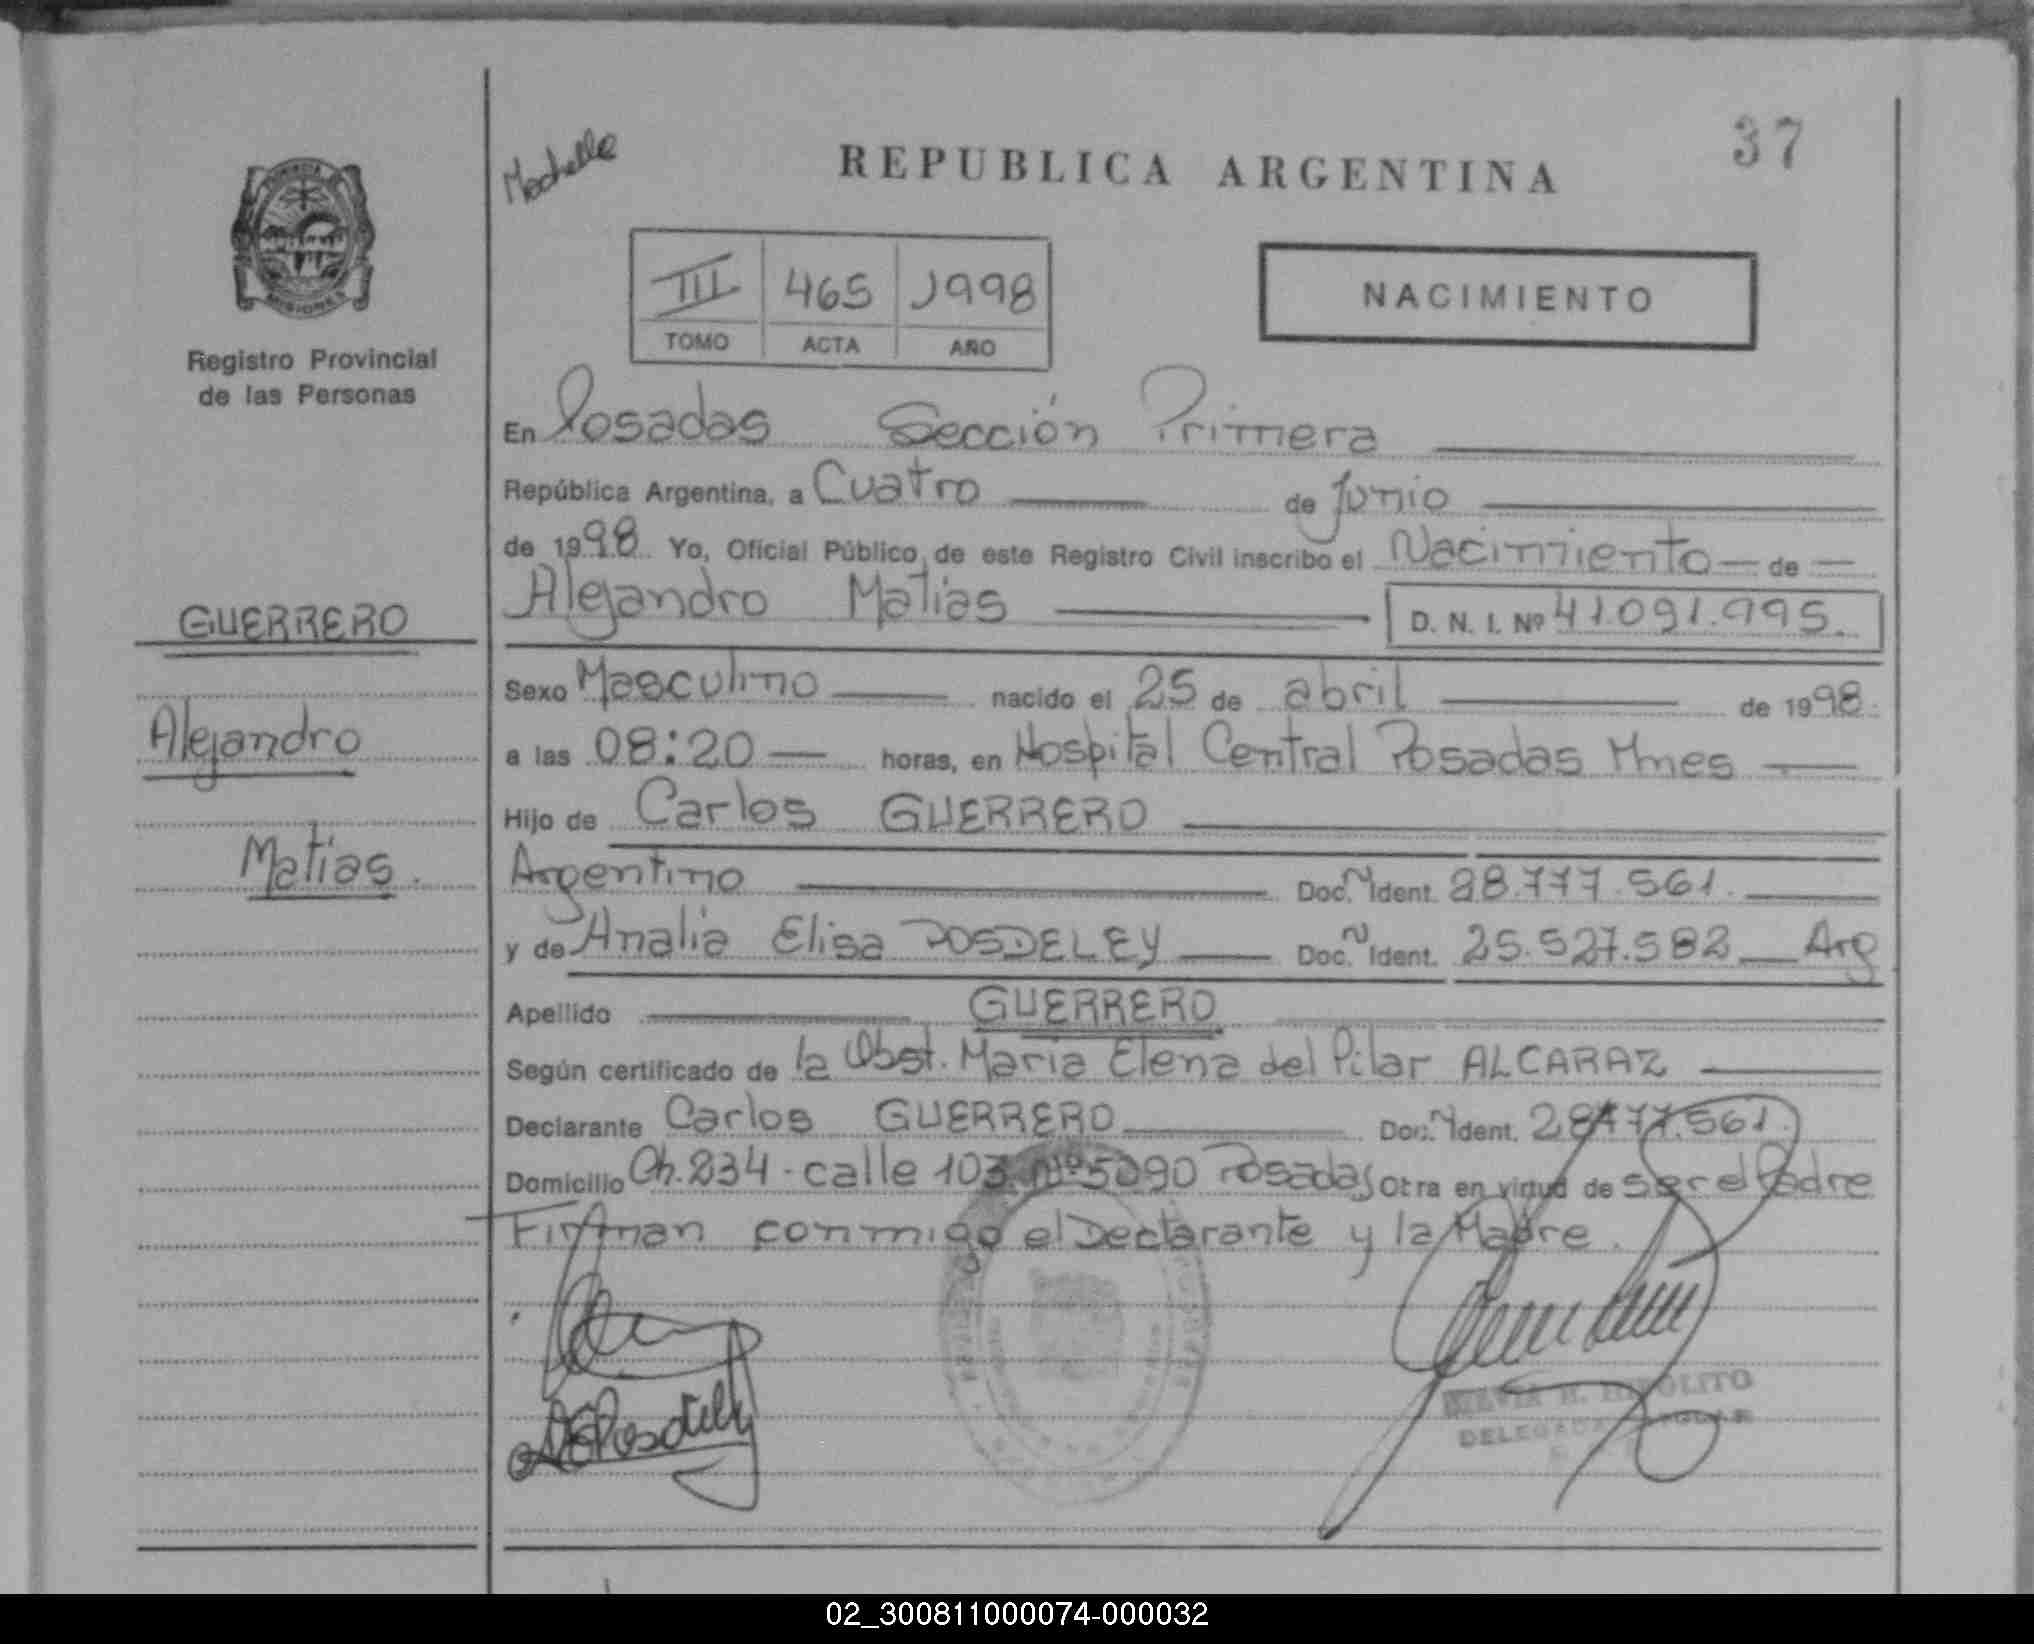 37
Mochelle
REPUBLICA ARGENTINA
III 465 1998
TOMO ACTA AÑO
NACIMIENTO
PROVINCIA DE
MISIONES
Registro Provincial
de las Personas
GUERRERO
Alejandro
Matias.
En Posadas Sección Primera
República Argentina, a Cuatro de Junio
de 1998 Yo, Oficial Público de este Registro Civil inscribo el Nacimiento de
Alejandro Matias D. N. I. Nº 41.091.995.
Sexo Masculino nacido el 25 de abril de 1998.
a las 08:20 horas, en Hospital Central Posadas Mnes
Hijo de Carlos GUERRERO
Argentino Doc. N Ident. 28.777.561.
y de Analia Elisa POSDELEY Doc. N Ident. 25.527.582 Arg
Apellido GUERRERO
Según certificado de la Obst. Maria Elena del Pilar ALCARAZ
Declarante Carlos GUERRERO Doc. N Ident. 28.777.561.
Domicilio Ch. 234 - calle 103 Nº 5090 Posadas Otra en virtud de ser el Padre
Firman conmigo el Declarante y la Madre.
AEPosdeley
H. HIPOLITO
DELEGADA
02_300811000074-000032